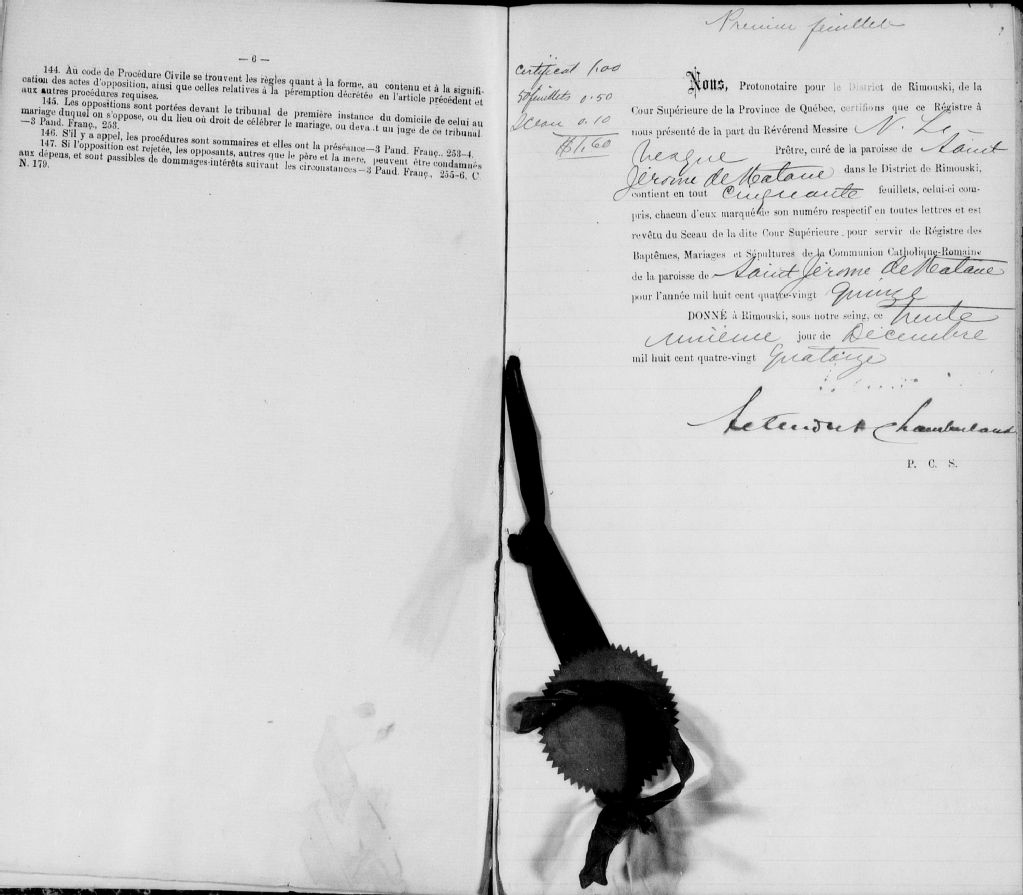 — 6 —
144. Au code de Procédure Civile se trouvent les règles quant à la forme, au contenu et à la signifi-
cation des actes d'opposition, ainsi que celles relatives à la péremption décrétée en l'article précédent et
aux autres procédures requises.
145. Les oppositions sont portées devant le tribunal de première instance du domicile de celui au
mariage duquel on s'oppose, ou du lieu où droit de célébrer le mariage, ou deva.t un juge de ce tribunal
—3 Pand. Franç., 253.
146. S'il y a appel, les procédures sont sommaires et elles ont la préséance—3 Pand. Franç.. 253-4.
147. Si l'opposition est rejetée, les opposants, autres que le père et la mère, peuvent être condamnés
aux dépens, et sont passibles de dommages-intérêts suivant les circonstances—3 Pand. Franç., 255-6. C
N. 179.
Premier feuillet
Certificat 1.00
50 feuillets 0.50
Sceau 0.10
$1.60
Nous, Protonotaire pour le District de Rimouski, de la
Cour Supérieure de la Province de Québec, certifions que ce Régistre à
nous présenté de la part du Révérend Messire N. Le
Prêtre, curé de la paroisse de Saint
Jérome de Matane dans le District de Rimouski,
contient en tout Cinquante feuillets, celui-ci com-
pris, chacun d'eux marqué de son numéro respectif en toutes lettres et est
revêtu du Sceau de la dite Cour Supérieure pour servir de Régistre des
Baptêmes, Mariages et Sépultures de la Communion Catholique-Romaine
de la paroisse de Saint Jérome de Matane
pour l'année mil huit cent quatre-vingt quinze
DONNÉ à Rimouski, sous notre seing, ce trente
unième jour de Décembre
mil huit cent quatre-vingt quatorze
Chamberland
P. C. S.